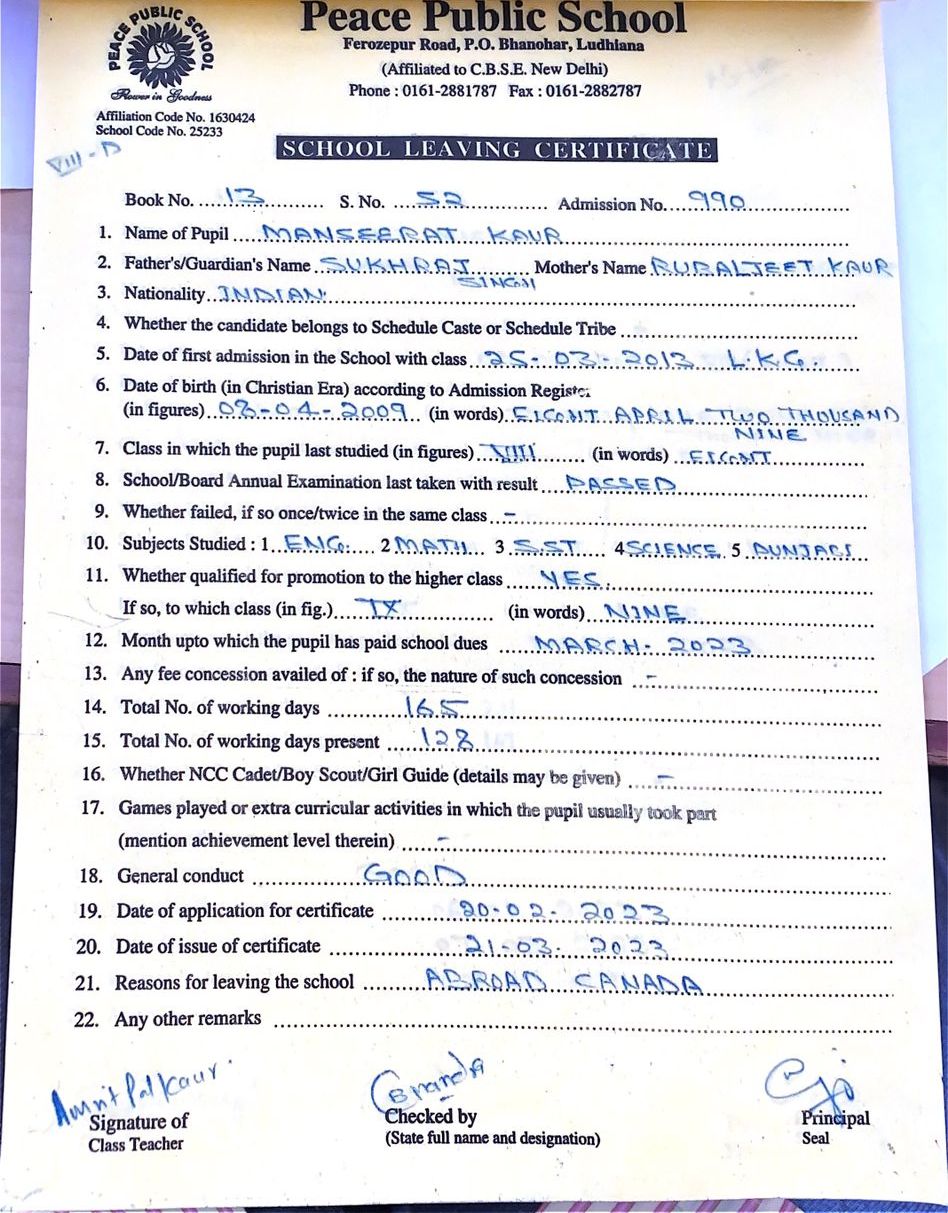 PEACE PUBLIC SCHOOL
Flower in Goodness
Peace Public School
Ferozepur Road, P.O. Bhanohar, Ludhiana
(Affiliated to C.B.S.E. New Delhi)
Phone : 0161-2881787 Fax : 0161-2882787
Affiliation Code No. 1630424
School Code No. 25233
VIII - D
SCHOOL LEAVING CERTIFICATE
Book No. 13 S. No. 52 Admission No. 990
1. Name of Pupil MANSEERAT KAUR
2. Father's/Guardian's Name SUKHRAJ SINGH Mother's Name RUBALJEET KAUR
3. Nationality INDIAN
4. Whether the candidate belongs to Schedule Caste or Schedule Tribe
5. Date of first admission in the School with class 25-03-2013 L.K.G.
6. Date of birth (in Christian Era) according to Admission Register
(in figures) 08-04-2009 (in words) EIGHT APRIL TWO THOUSAND
NINE
7. Class in which the pupil last studied (in figures) VIII (in words) EIGHT
8. School/Board Annual Examination last taken with result PASSED
9. Whether failed, if so once/twice in the same class -
10. Subjects Studied : 1 ENG. 2 MATH 3 S.ST 4 SCIENCE 5 PUNJABI
11. Whether qualified for promotion to the higher class YES.
If so, to which class (in fig.) IX (in words) NINE
12. Month upto which the pupil has paid school dues MARCH - 2023
13. Any fee concession availed of : if so, the nature of such concession -
14. Total No. of working days 165
15. Total No. of working days present 128
16. Whether NCC Cadet/Boy Scout/Girl Guide (details may be given) -
17. Games played or extra curricular activities in which the pupil usually took part
(mention achievement level therein) -
18. General conduct GOOD
19. Date of application for certificate 20-02-2023
20. Date of issue of certificate 21-03-2023
21. Reasons for leaving the school ABROAD CANADA
22. Any other remarks
Amrit Pal Kaur
Signature of
Class Teacher
Checked by
(State full name and designation)
Principal
Seal